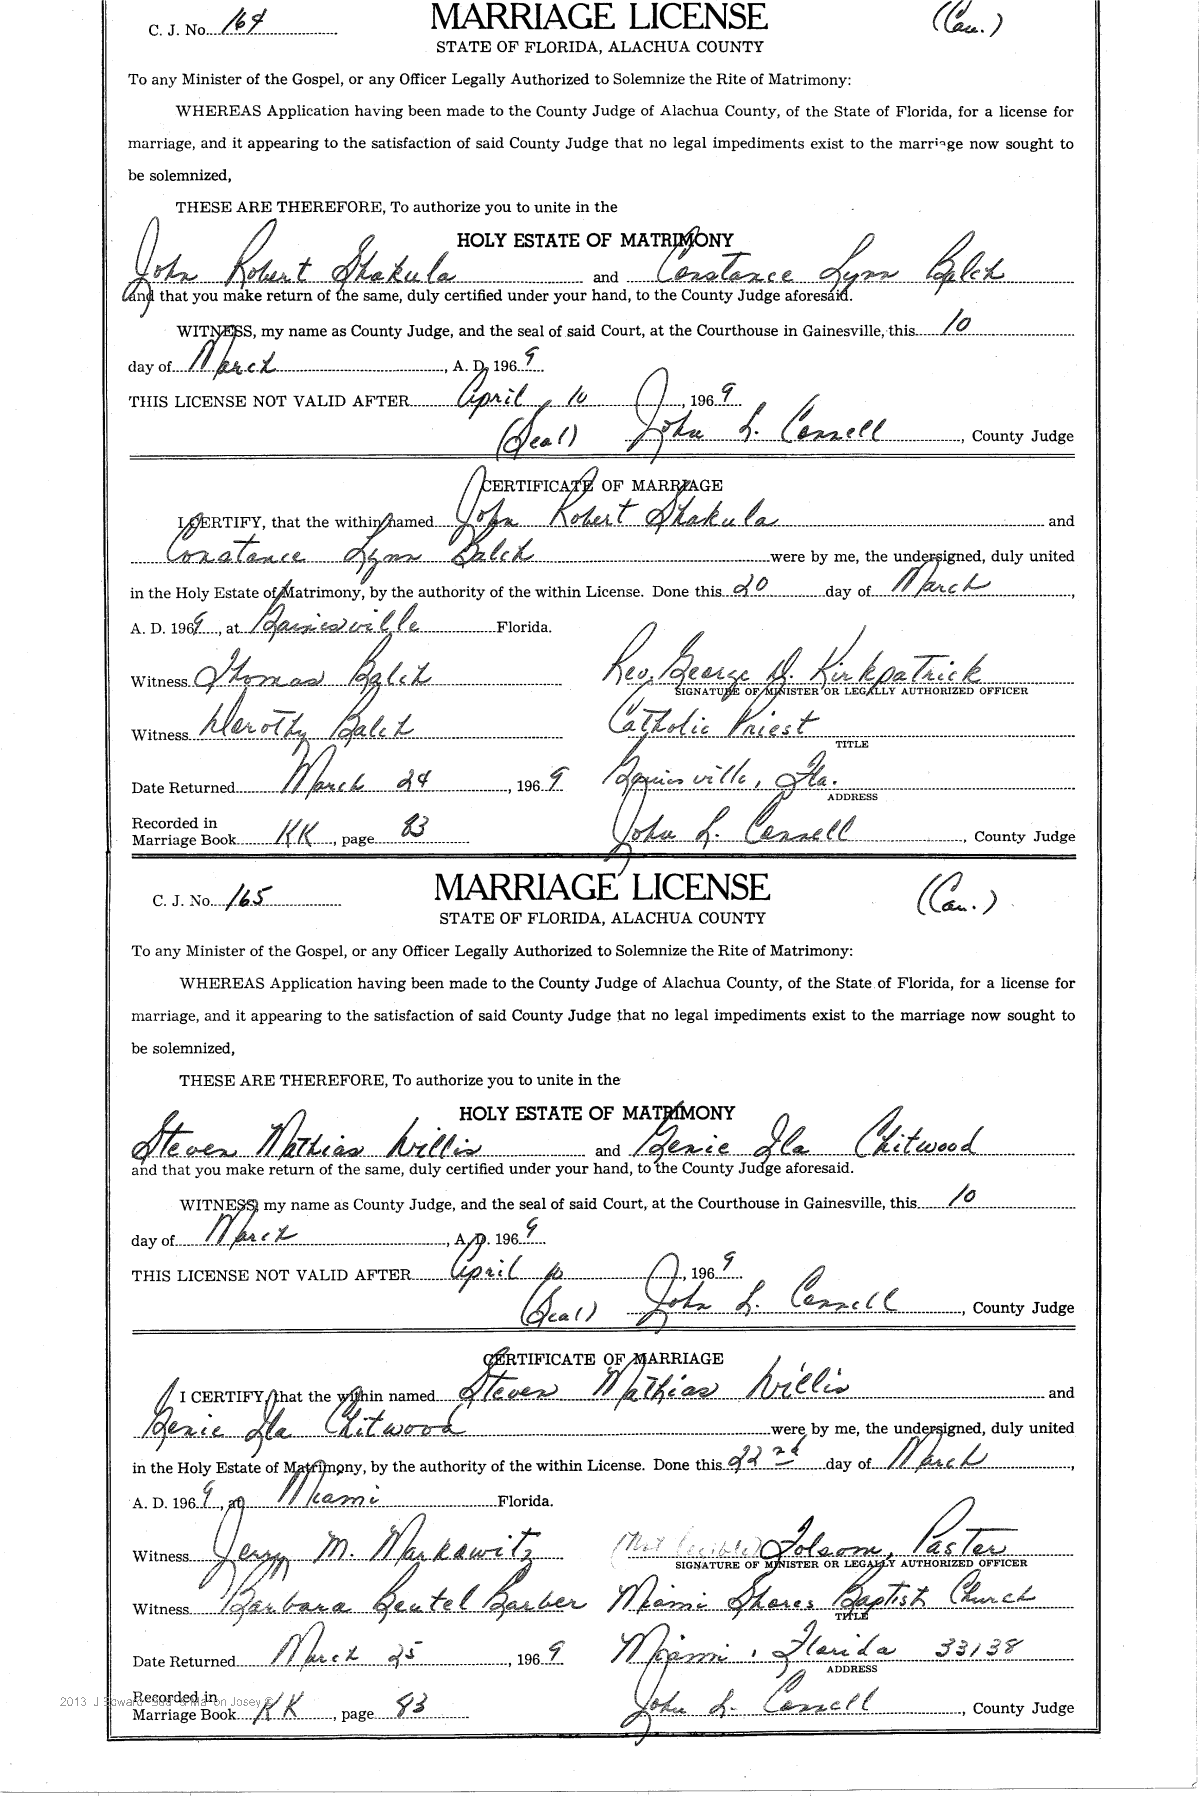 C. J. No. 164 MARRIAGE LICENSE (Cau.)
STATE OF FLORIDA, ALACHUA COUNTY
To any Minister of the Gospel, or any Officer Legally Authorized to Solemnize the Rite of Matrimony:
WHEREAS Application having been made to the County Judge of Alachua County, of the State of Florida, for a license for
marriage, and it appearing to the satisfaction of said County Judge that no legal impediments exist to the marriage now sought to
be solemnized,
THESE ARE THEREFORE, To authorize you to unite in the
HOLY ESTATE OF MATRIMONY
John Robert Shakula and Constance Lynn Balch
and that you make return of the same, duly certified under your hand, to the County Judge aforesaid.
WITNESS, my name as County Judge, and the seal of said Court, at the Courthouse in Gainesville, this 10
day of March, A. D. 1969
THIS LICENSE NOT VALID AFTER April 10, 1969
(Seal) John L. Connell, County Judge
CERTIFICATE OF MARRIAGE
I CERTIFY, that the within named John Robert Shakula and
Constance Lynn Balch were by me, the undersigned, duly united
in the Holy Estate of Matrimony, by the authority of the within License. Done this 20 day of March,
A. D. 1969, at Gainesville Florida.
Witness Thomas Balch Rev. George D. Kirkpatrick
SIGNATURE OF MINISTER OR LEGALLY AUTHORIZED OFFICER
Witness Dorothy Balch Catholic Priest
TITLE
Date Returned March 24, 1969 Gainesville, Fla.
ADDRESS
Recorded in
Marriage Book KK, page 83 John L. Connell, County Judge
C. J. No. 165 MARRIAGE LICENSE (Cau.)
STATE OF FLORIDA, ALACHUA COUNTY
To any Minister of the Gospel, or any Officer Legally Authorized to Solemnize the Rite of Matrimony:
WHEREAS Application having been made to the County Judge of Alachua County, of the State of Florida, for a license for
marriage, and it appearing to the satisfaction of said County Judge that no legal impediments exist to the marriage now sought to
be solemnized,
THESE ARE THEREFORE, To authorize you to unite in the
HOLY ESTATE OF MATRIMONY
Steven Mathias Willis and Genie Ila Chitwood
and that you make return of the same, duly certified under your hand, to the County Judge aforesaid.
WITNESS, my name as County Judge, and the seal of said Court, at the Courthouse in Gainesville, this 10
day of March, A. D. 1969
THIS LICENSE NOT VALID AFTER April 10, 1969
(Seal) John L. Connell, County Judge
CERTIFICATE OF MARRIAGE
I CERTIFY, that the within named Steven Mathias Willis and
Genie Ila Chitwood were by me, the undersigned, duly united
in the Holy Estate of Matrimony, by the authority of the within License. Done this 22nd day of March,
A. D. 1969, at Miami Florida.
Witness Jerry M. Markawitz (Not legible) Folsom, Paster
SIGNATURE OF MINISTER OR LEGALLY AUTHORIZED OFFICER
Witness Barbara Beutel Barber Miami Shores Baptist Church
TITLE
Date Returned March 25, 1969 Miami, Florida 33138
ADDRESS
Recorded in
Marriage Book KK, page 83 John L. Connell, County Judge
2013 J Josey